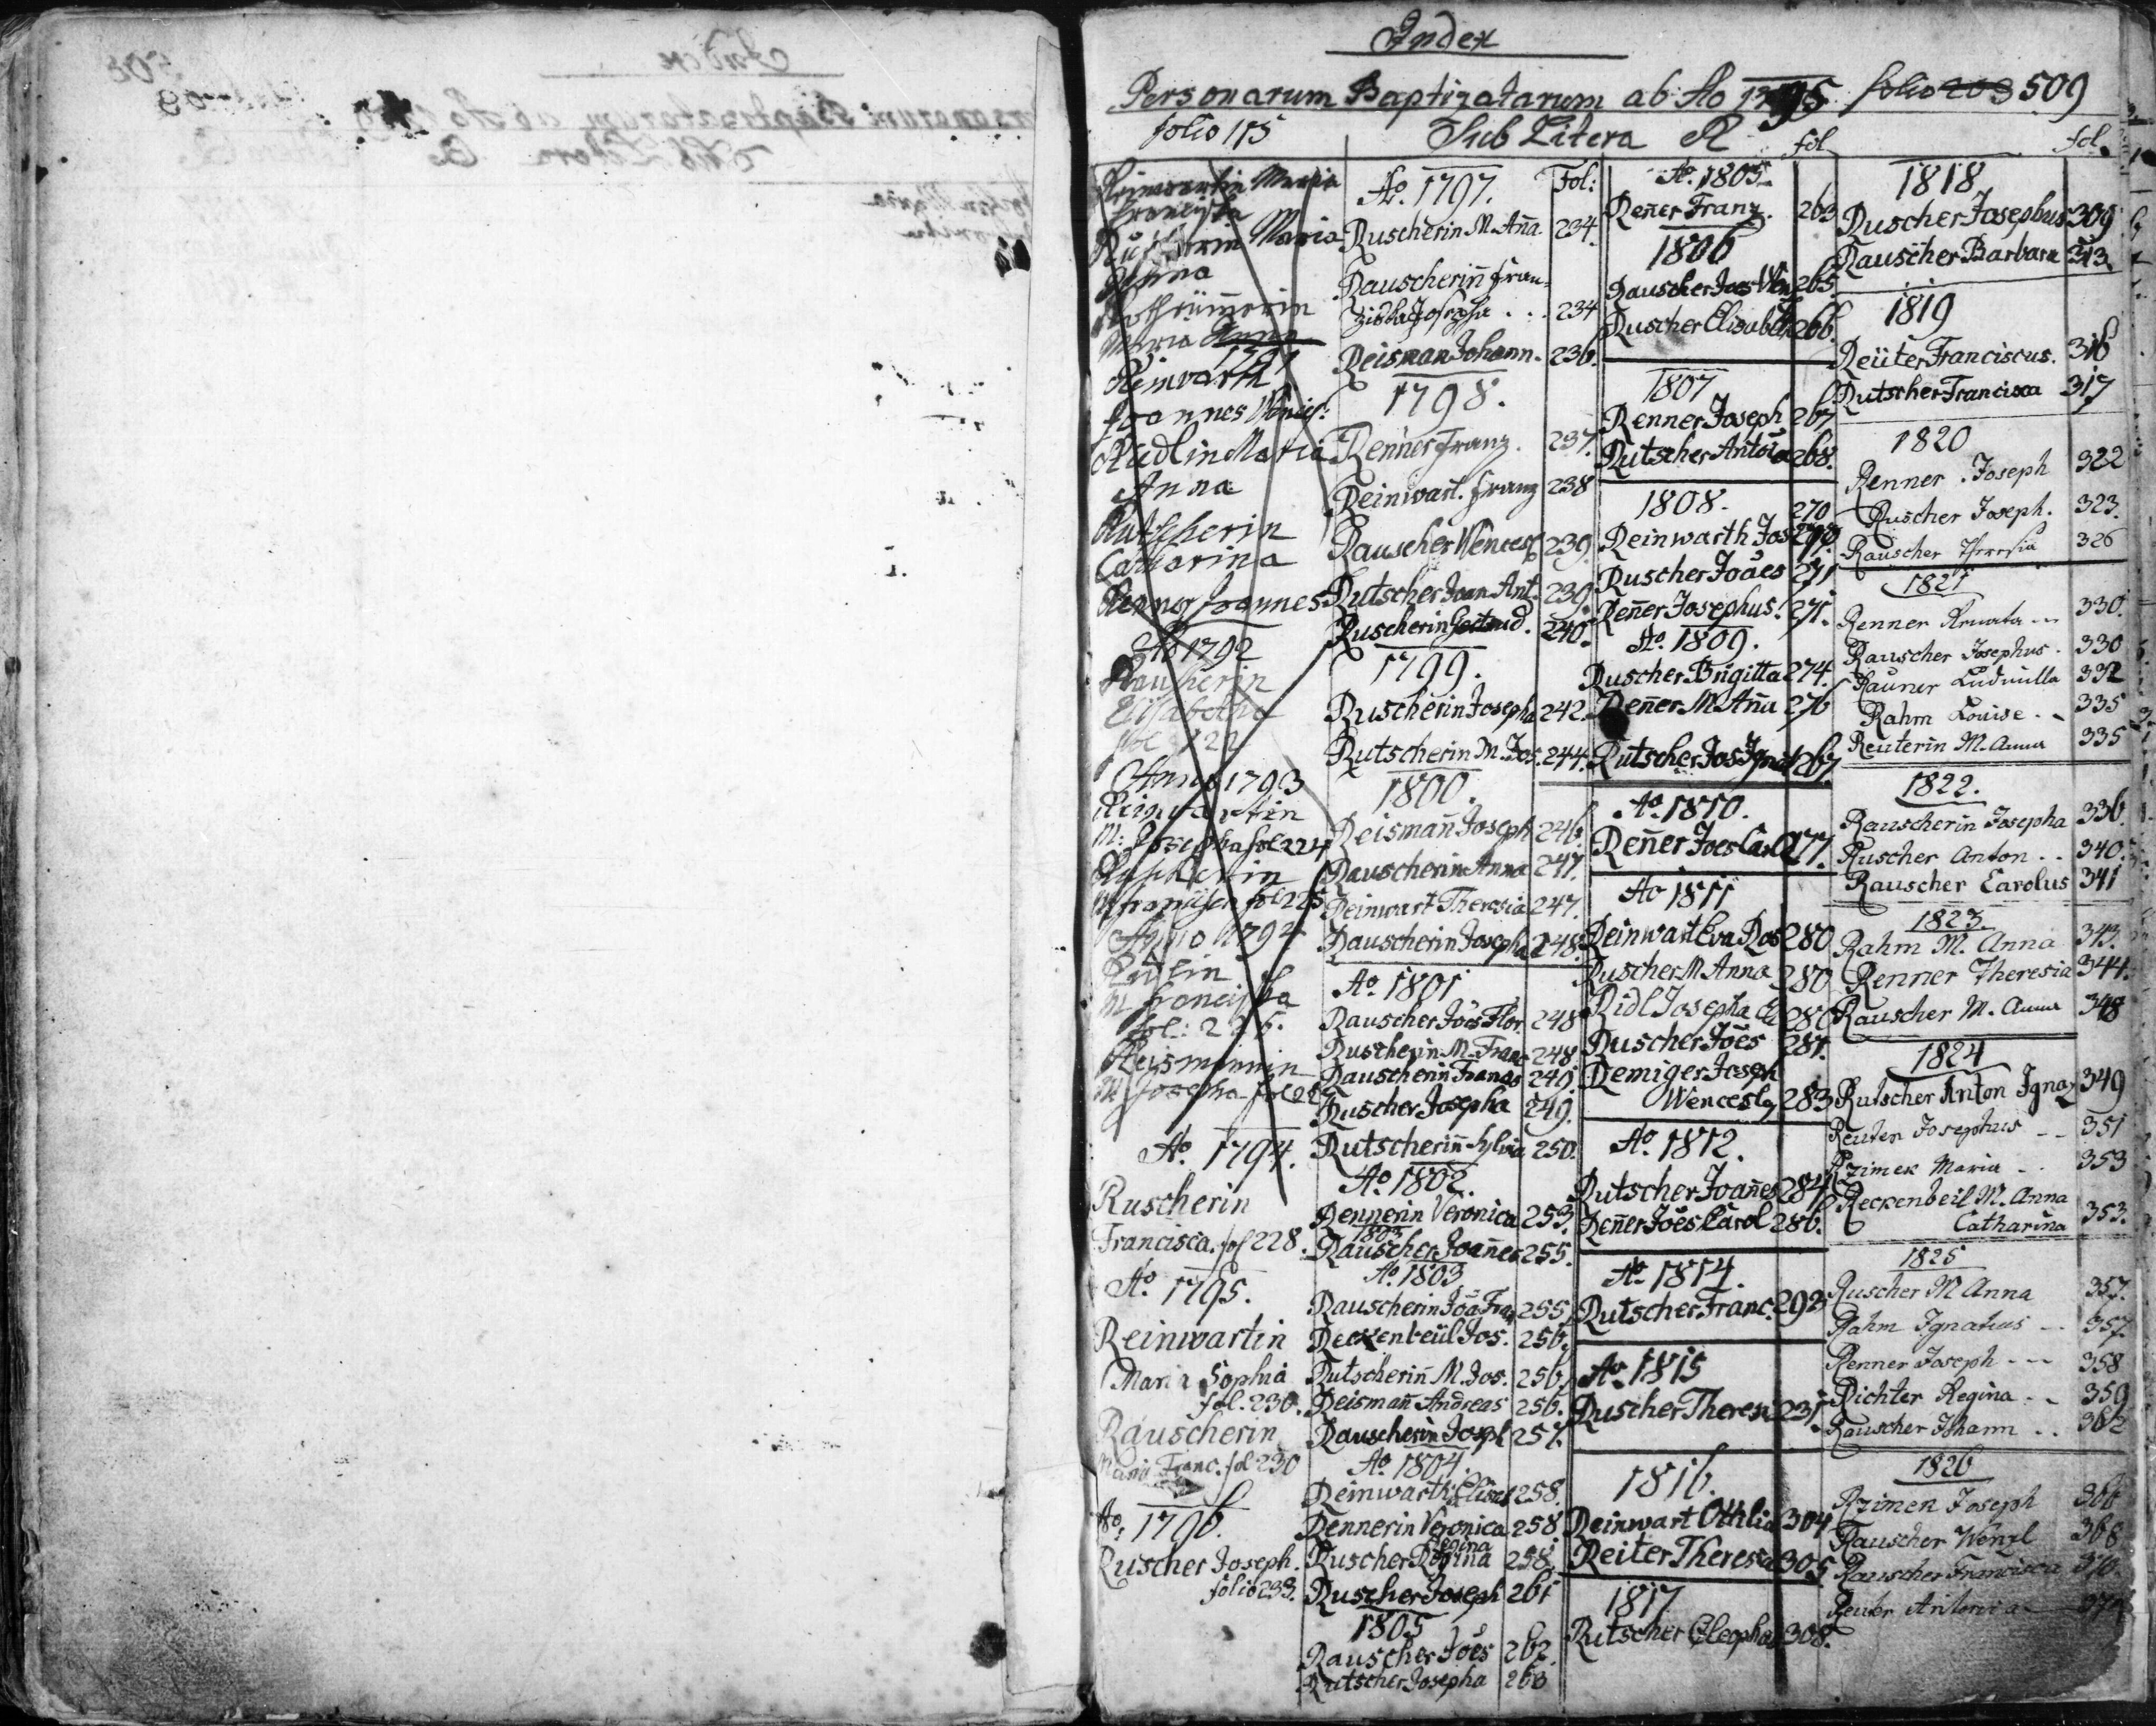 Index
Personarum Baptizatarum ab Ao 1795 folio 203 509
folio 115 Sub Litera R fol fol.
Reinwartin Maria
Francisca
Maria
Anna
Maria Anna
Reinwarth
Joannes Wences:
Riedlin Maria
Anna
Rutscherin
Catharina
Renner Joannes
Ao 1792
Rauscherin
Elisabetha
fol 122
Anno 1793
Reinwartin
M: Josepha fol 224
Ruscherin
M francisca fol 225
Anno 1794
Ridlin
M. Francisca
fol: 225.
Reismannin
M. Josepha fol 22
Ao. 1794.
Ruscherin
Francisca. fol 228.
Ao. 1795.
Reinwartin
Maria Sophia
fol. 230.
Rauscherin
Maria Franc. fol 230
Ao. 1796.
Ruscher Joseph.
folio 233.
Ao. 1797. Fol:
Ruscherin M. Aña 234.
Rauscherin̄ Fran-
ziska Josepha . . . 234
Reisman Johann. 236.
1798.
Renner Franz. 237.
Reinwart. Franz 238
Rauscher Wencesl 239.
Rutscher Joan Ant. 239.
Ruscherin Gertrud. 240.
1799.
Ruscherin Josepha 242.
Rutscherin M. Jos. 244.
1800.
Reismañ Joseph 246.
Rauscherin Anna 247.
Reinwart Theresia 247.
Rauscherin Josepha 248.
Ao. 1801
Rauscher Jões Flor. 248
Ruscherin M. Franc 248
Rauscherin Franc 249.
Ruscher Josepha 249.
Rutscherin̄ Sylvia 250.
Ao. 1802.
Rennerin Veronica 253.
1803
Rauscher Joañes 255.
Ao. 1803
Rauscherin Joā Fran 255.
Reckenbeül Jos. 256.
Rutscherin̄ M. Jos. 256.
Reismañ Andreas 256.
Rauscherin Josph 257.
Ao. 1804.
Reinwarth Elisab 258.
Rennerin Veronica 258.
Regina
Ruscher Regina 258.
Ruscher Joseph 261
1805
Rauscher Jões 262.
Rutscher Josepha 263
Ao. 1805.
Reñer Franz. 263
1806
Rauscher Joes Wen 265.
Ruscher Elisabeth 266.
1807
Renner Joseph 267
Rutscher Antoia 268.
1808. 270
Reinwarth Jos 270.
Ruscher Joães 271
Reñer Josephus. 271.
Ao. 1809.
Ruscher Brigitta 274.
Reñer M. Aña 276
Rutscher Jos Ignat 267
Ao. 1810.
Reñer Joes Car 277.
Ao 1811
Reinwart Eva Ros 280
Ruscher M Anna 280
Ridl Josepha 280
Ruscher Jões 281.
Remiger Joseph
Wencesl 283
Ao. 1812.
Rutscher Joañes 284
Reñer Jões Carol 286.
Ao. 1814.
Rutscher Franc. 292
Ao. 1815
Ruscher Theres 231
1816.
Reinwart Ottilia 304
Reiter Theresia 305
1817
Rutscher Cleopha 308.
1818
Ruscher Josephus 309
Rauscher Barbara 313
1819
Reüter Franciscus. 316
Rutscher Francisca 317
1820
Renner. Joseph 322
Ruscher Joseph. 323.
Rauscher Theresia 326
1821
Renner Renata -- 330.
Rauscher Josephus. 330
Rauner Ludmilla 332
Rahm Louise. - 335
Reuterin M. Anna 335
1822.
Rauscherin Josepha 336.
Ruscher Anton . . 340.
Rauscher Carolus 341
1823.
Rahm M. Anna 343.
Renner Theresia 344.
Rauscher M. Anna 348
1824
Rutscher Anton Ignaz 349
Reuter Josephus -- 351
Rzimek Maria - . 353
Reckenbeil M. Anna
Catharina 353.
1825
Ruscher M Anna 357.
Rahm Ignatius -- 357.
Renner Joseph --- 358
Richter Regina. - 359
Rauscher Johann . . 362
1826
Rzimen Joseph 366
Rauscher Wenzl 368
Rauscher Francisca 370.
Reuter Antonia